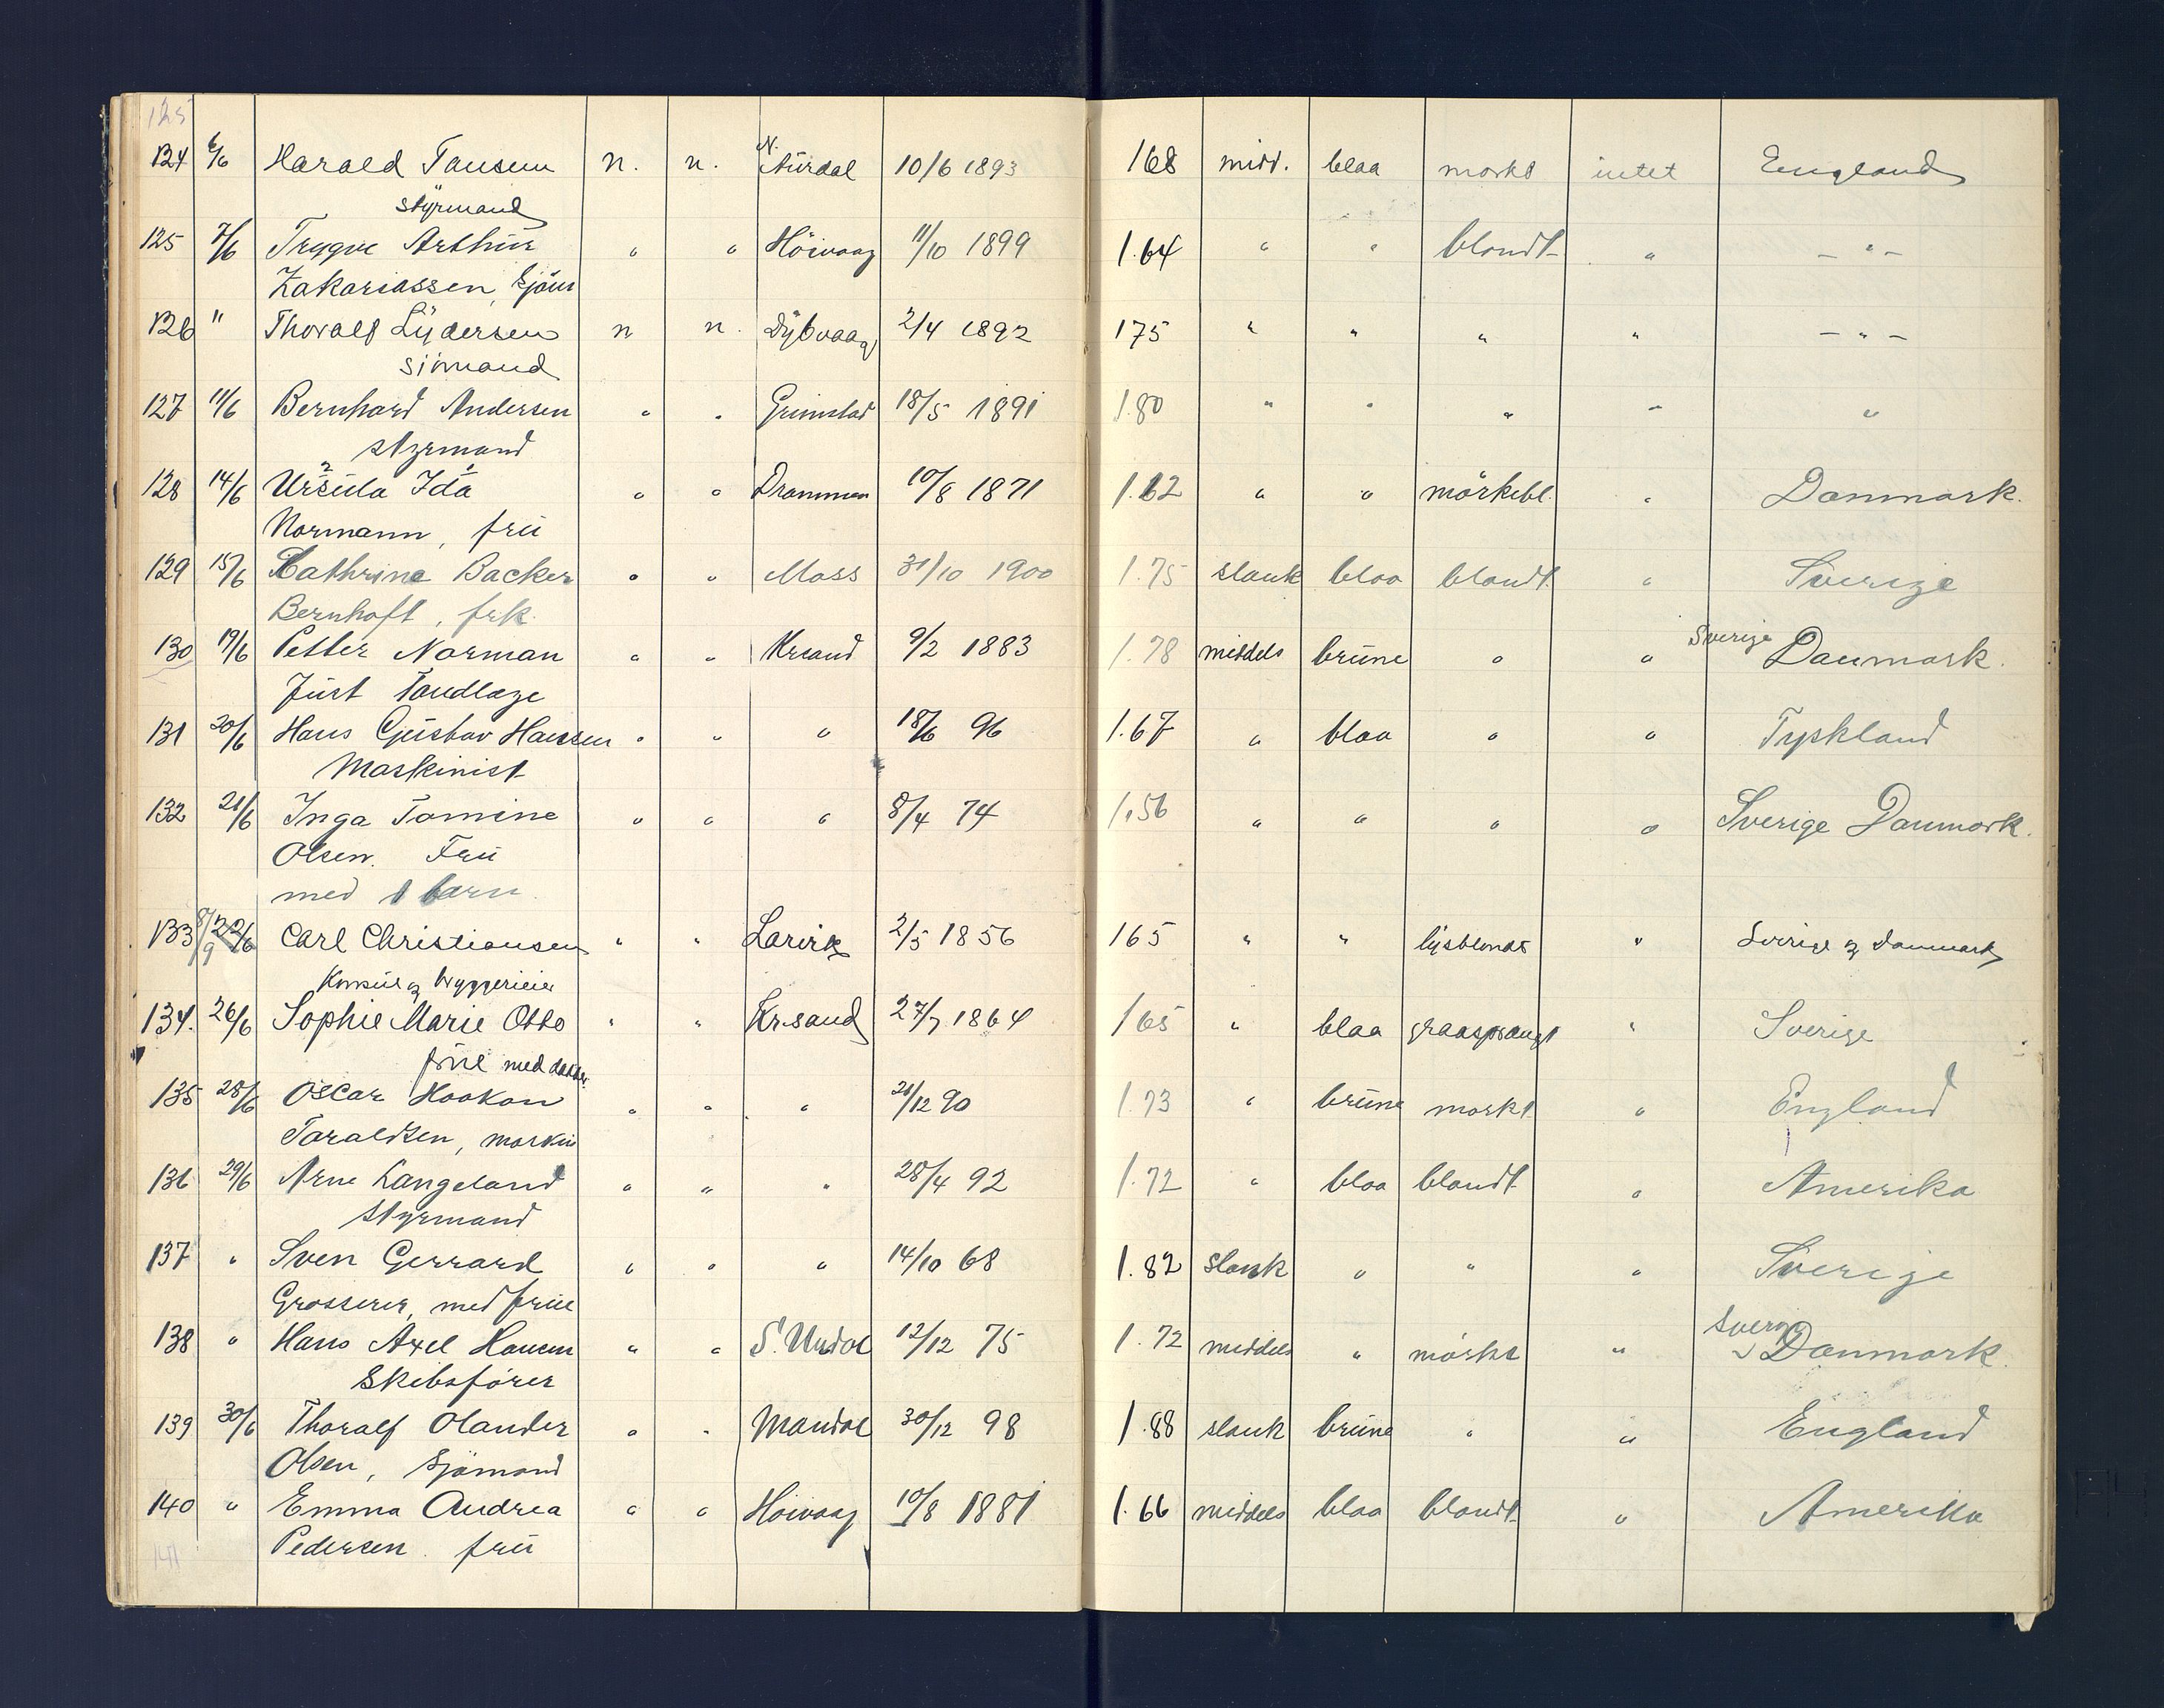 125
124 6/6 Harald Tansem n. n. N. Aurdal 10/6 1893 168 midd. blaa morkt intet England
styrmand
125 7/6 Trygve Arthur " " Höivaag 11/10 1899 1.64 " " blondt " — " —
Zakariassen, Sjöm
126 " Thoralf Lydersen n n. Dybvaag 2/4 1892 175 " " " " — " —
sömand
127 11/6 Bernhard Andersen " " Grimstad 18/5 1891 1.80 " " " " "
styrmand
128 14/6 Ursula Ida " " Drammen 10/8 1871 1.62 " " mörkebl. " Danmark.
Normann, fru
129 15/6 Kathrine Backer " " Moss 31/10 1900 1.75 slank blaa blondt " Sverige
Bernhoft, frk.
130 19/6 Petter Norman " " Krsand 9/2 1883 1.78 middels brune " " Sverige Danmark.
Just Tandlæge
131 20/6 Hans Gustav Hansen " " " 18/6 96 1.67 " blaa " " Tyskland
Maskinist
132 21/6 Inga Tomine " " " 8/4 74 1,56 " " " " Sverige Danmark.
Olsen. Fru
med 1 barn
133 8/9 22/6 Carl Christiansen " " Larvik 2/5 1856 165 " " lysblondt " Sverige og Danmark
Konsul og bryggerieier
134. 26/6 Sophie Marie Otto " " Kr.sand 27/7 1864 165 " blaa graasprængt " Sverige
frue med datter
135 28/6 Oscar Haakon " " " 21/12 90 1.73 " brune morkt " England
Taraldsen, maskin
136 29/6 Arne Langeland " " " 28/4 92 1.72 " blaa blondt " Amerika
styrmand
137 " Sven Gerrard " " " 14/10 68 1.82 slank " " " Sverige
Grosserer, med frue
138 " Hans Axel Hansen " " S. Undal 12/12 75 1.72 middels " morkt " Sverige Danmark.
Skibsförer
139 30/6 Thoralf Olander " " Mandal 30/12 98 1.88 slank brune " " England
Olsen, Sjömand
140 " Emma Andrea " " Höivaag 10/8 1881 1.66 middels blaa blondt " Amerika
Pedersen. fru
141